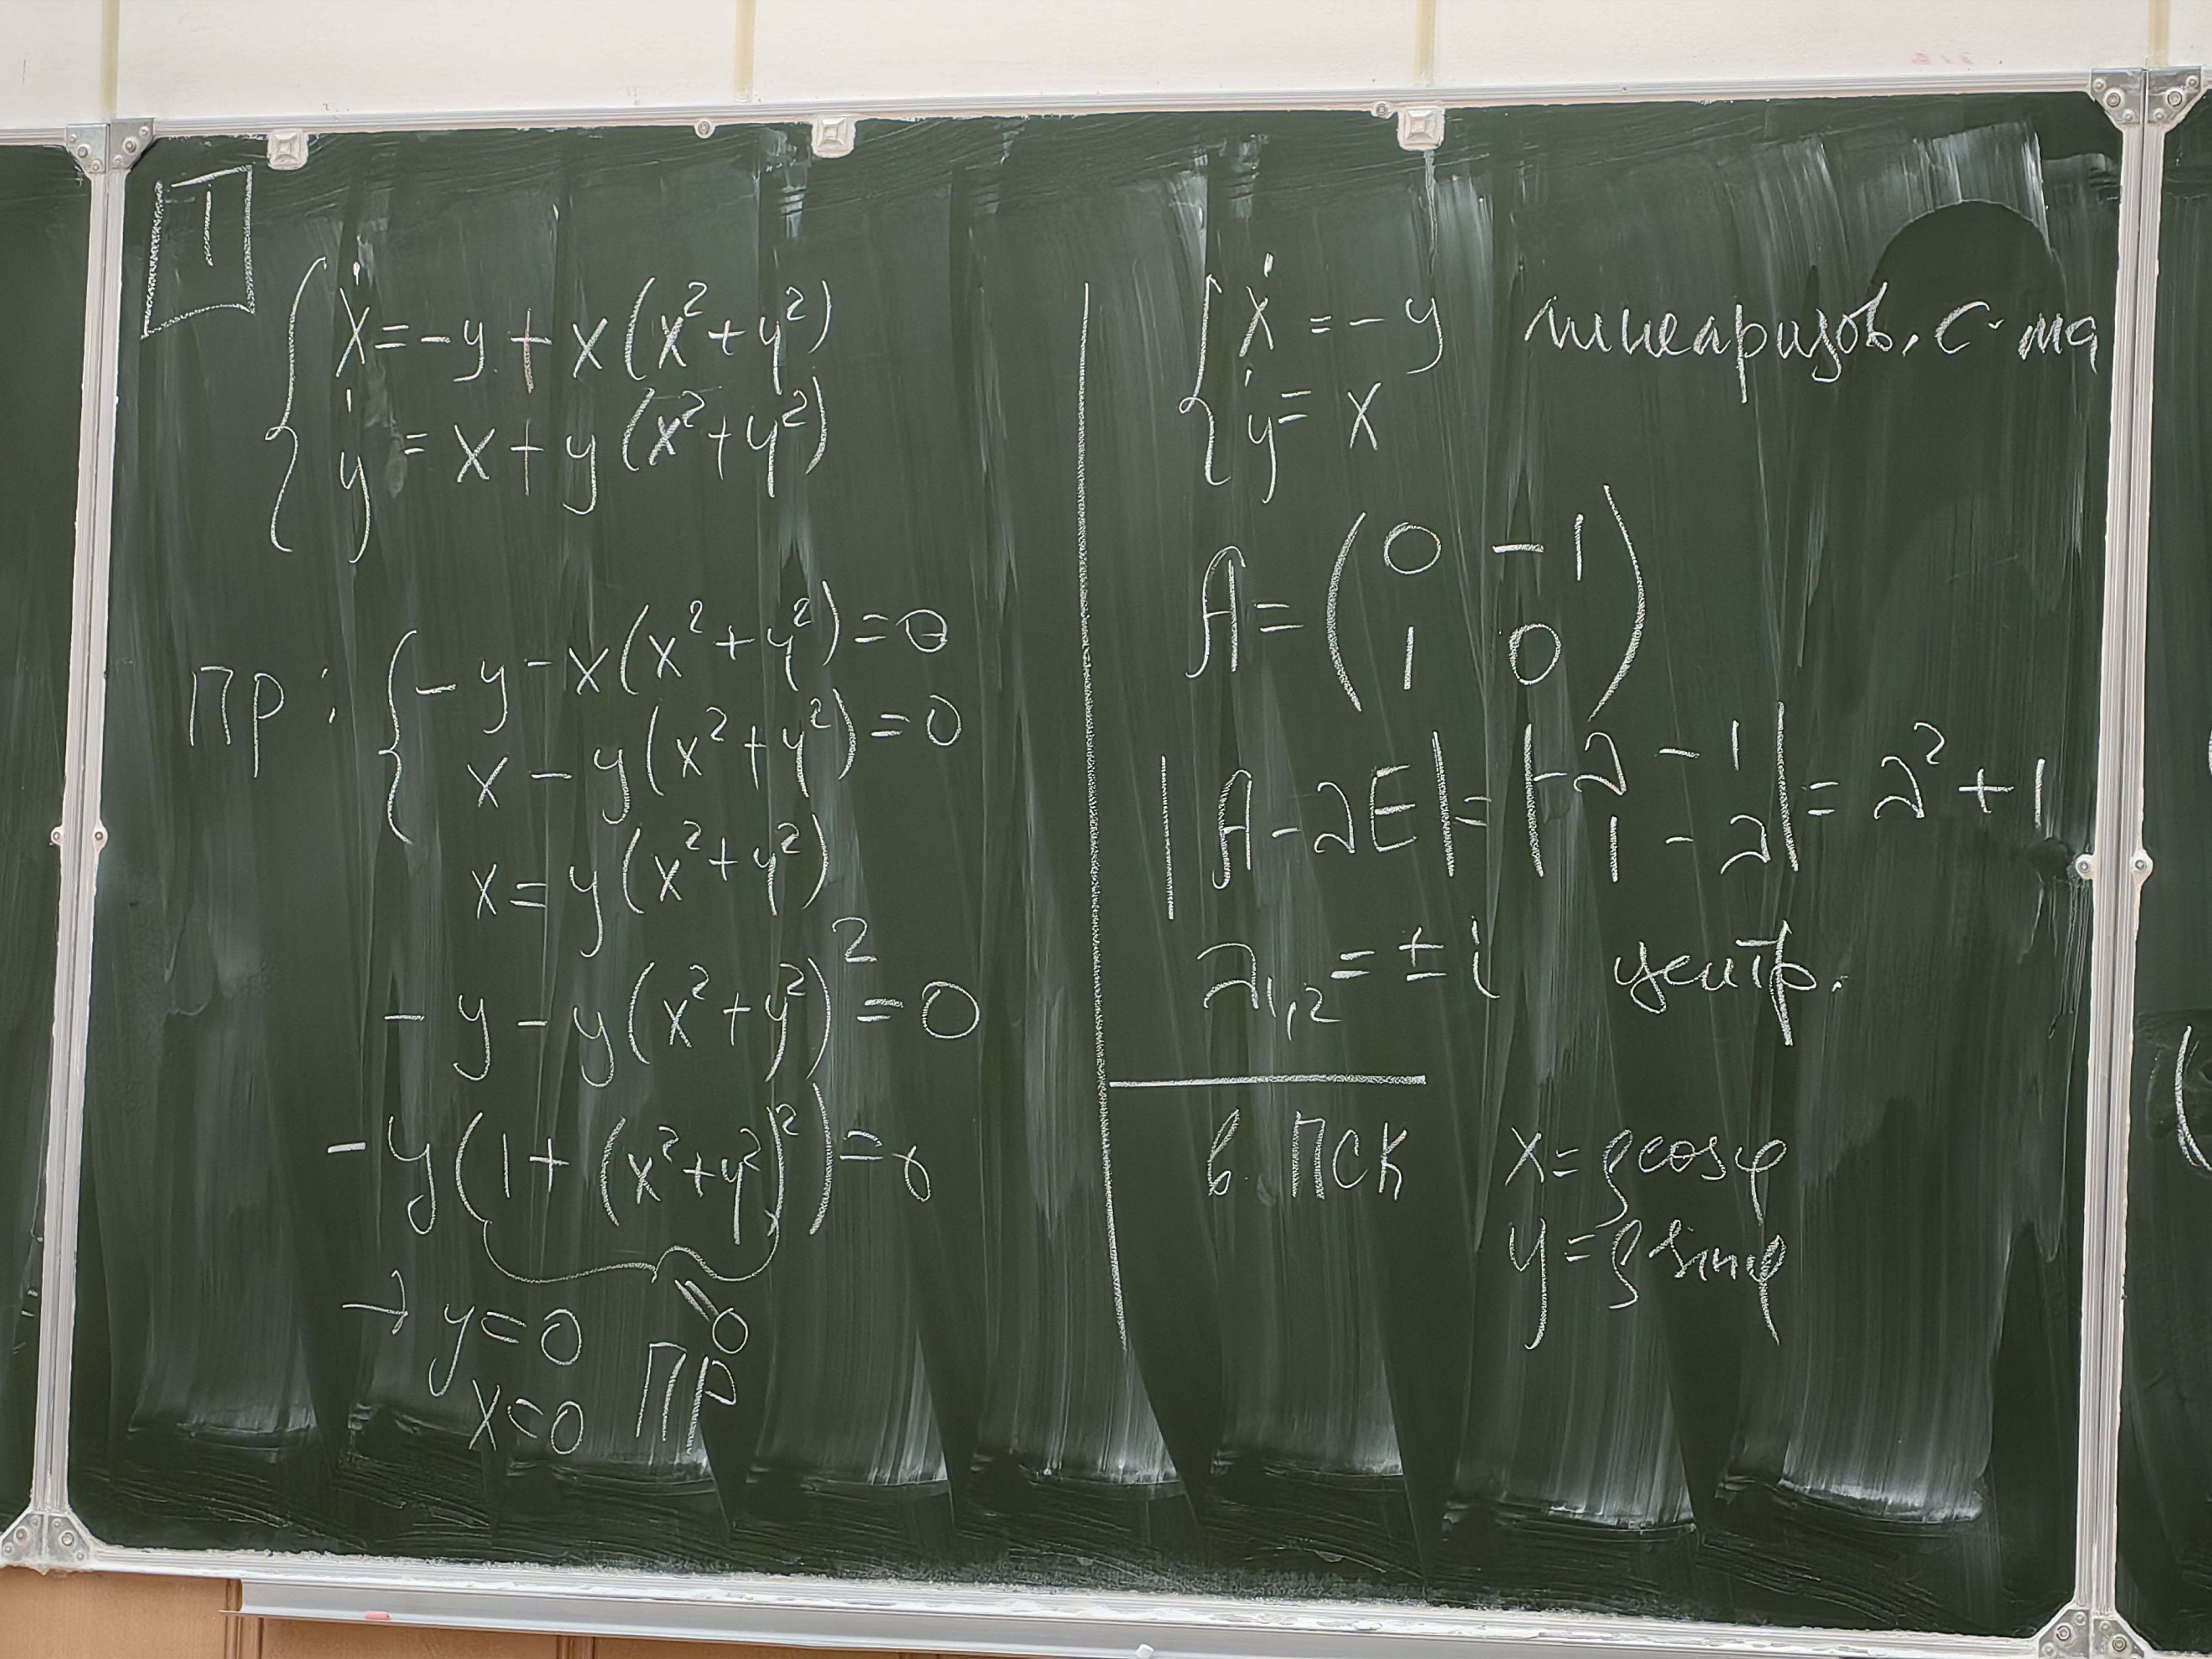 1
ẋ = -y + x(x² + y²)
ẏ = x + y(x² + y²)
ПР: { -y - x(x² + y²) = 0
x - y(x² + y²) = 0
x = y(x² + y²)
-y - y(x² + y²)² = 0
-y(1 + (x² + y²)²) = 0
→ y = 0
x = 0 ПР
ẋ = -y линеаризов. с-ма
ẏ = x
A = (0 -1
1 0)
|A - λE| = |-λ -1
1 -λ| = λ² + 1
λ₁,₂ = ± i центр.
в ПСК x = ρcosφ
y = ρsinφ